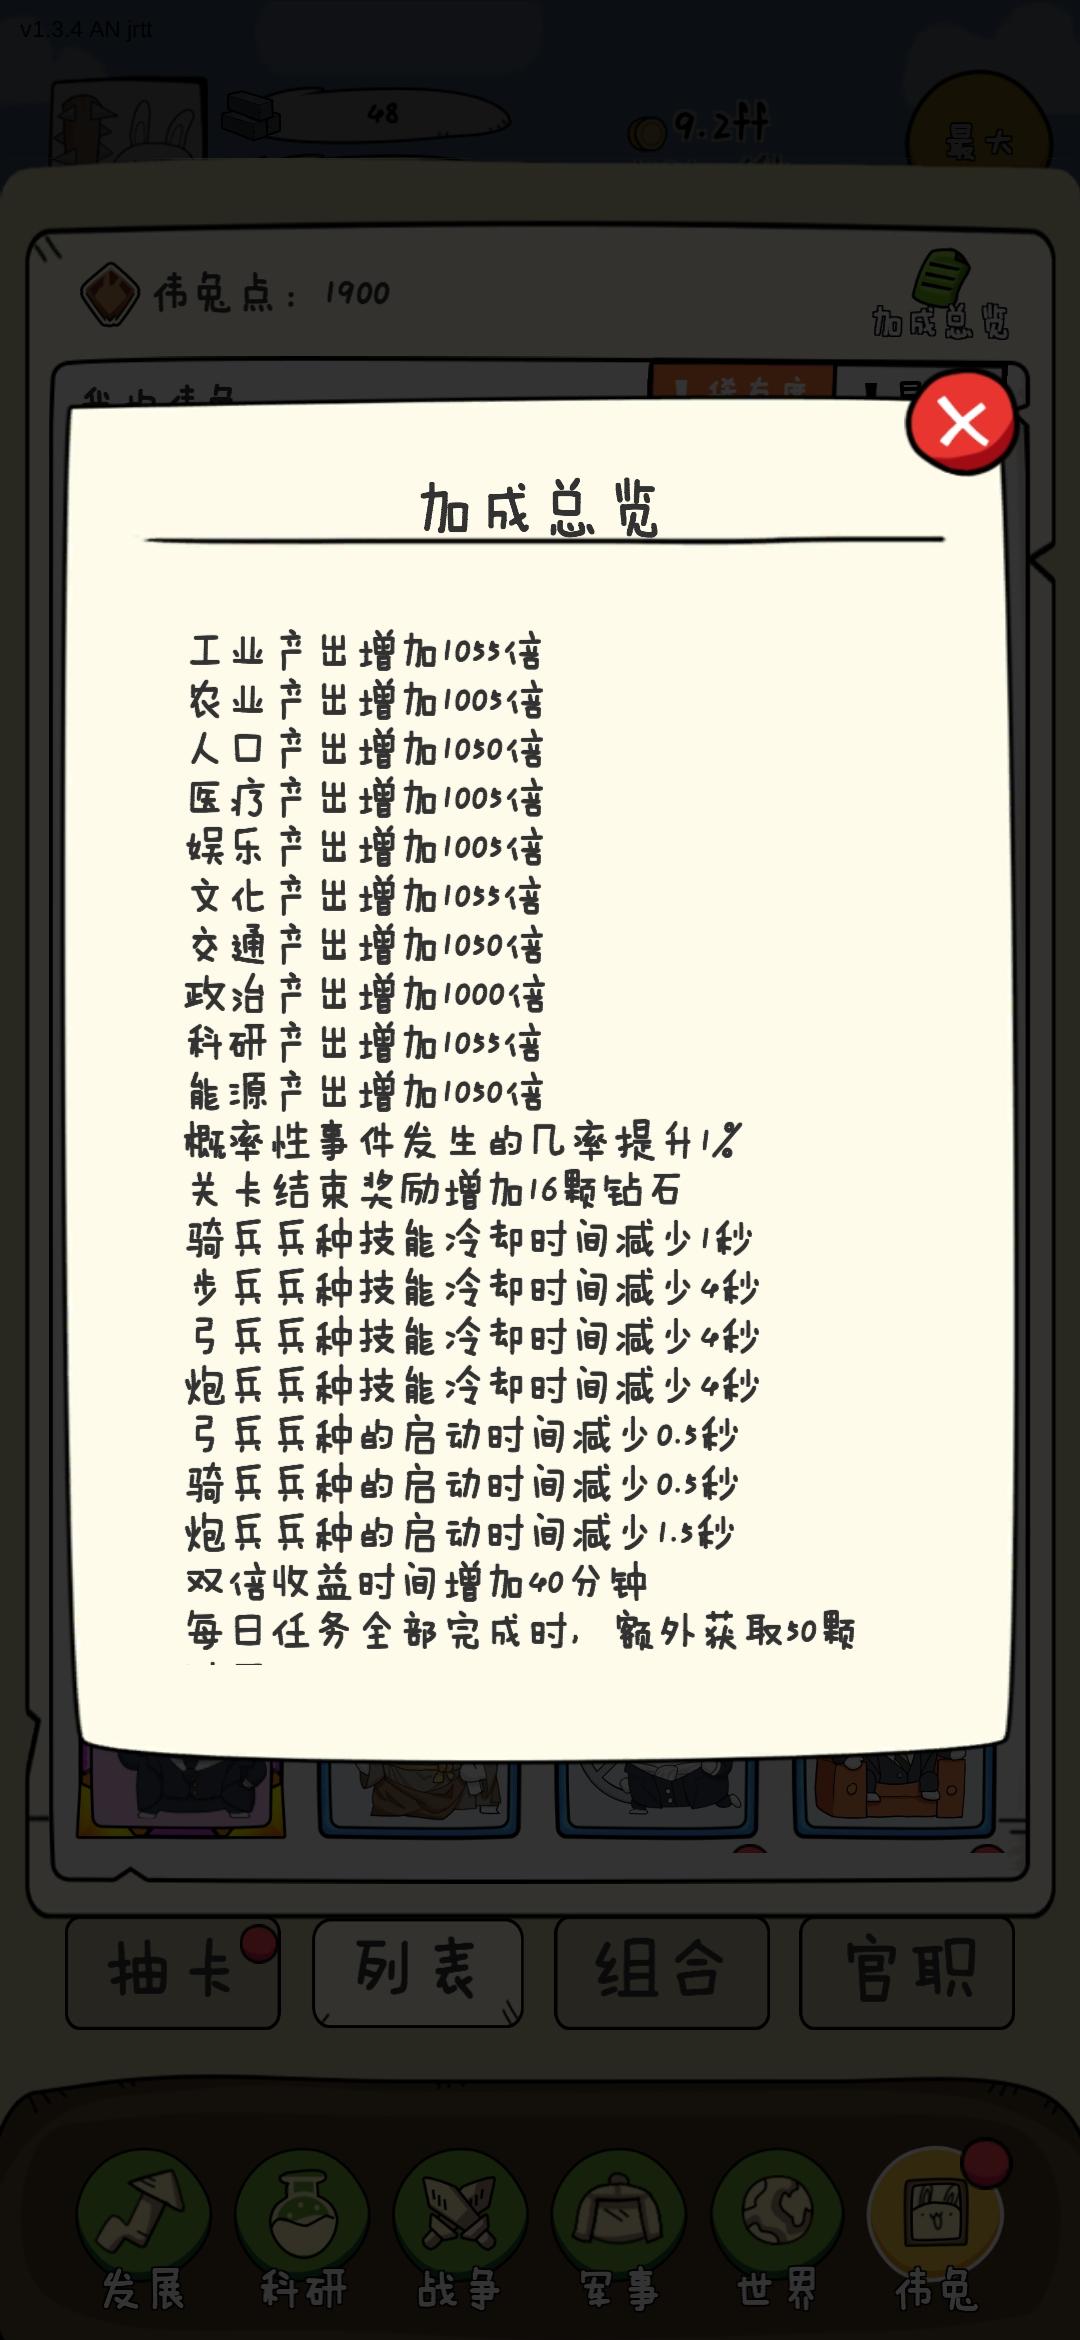 v1.3.4 AN jrtt
48
9.2ff
最大
伟兔点：1900
加成总览
加成总览
工业产出增加1055倍
农业产出增加1005倍
人口产出增加1050倍
医疗产出增加1005倍
娱乐产出增加1005倍
文化产出增加1055倍
交通产出增加1050倍
政治产出增加1000倍
科研产出增加1055倍
能源产出增加1050倍
概率性事件发生的几率提升1%
关卡结束奖励增加16颗钻石
骑兵兵种技能冷却时间减少1秒
步兵兵种技能冷却时间减少4秒
弓兵兵种技能冷却时间减少4秒
炮兵兵种技能冷却时间减少4秒
弓兵兵种的启动时间减少0.5秒
骑兵兵种的启动时间减少0.5秒
炮兵兵种的启动时间减少1.5秒
双倍收益时间增加40分钟
每日任务全部完成时，额外获取50颗
抽卡 列表 组合 官职
发展 科研 战争 军事 世界 伟兔